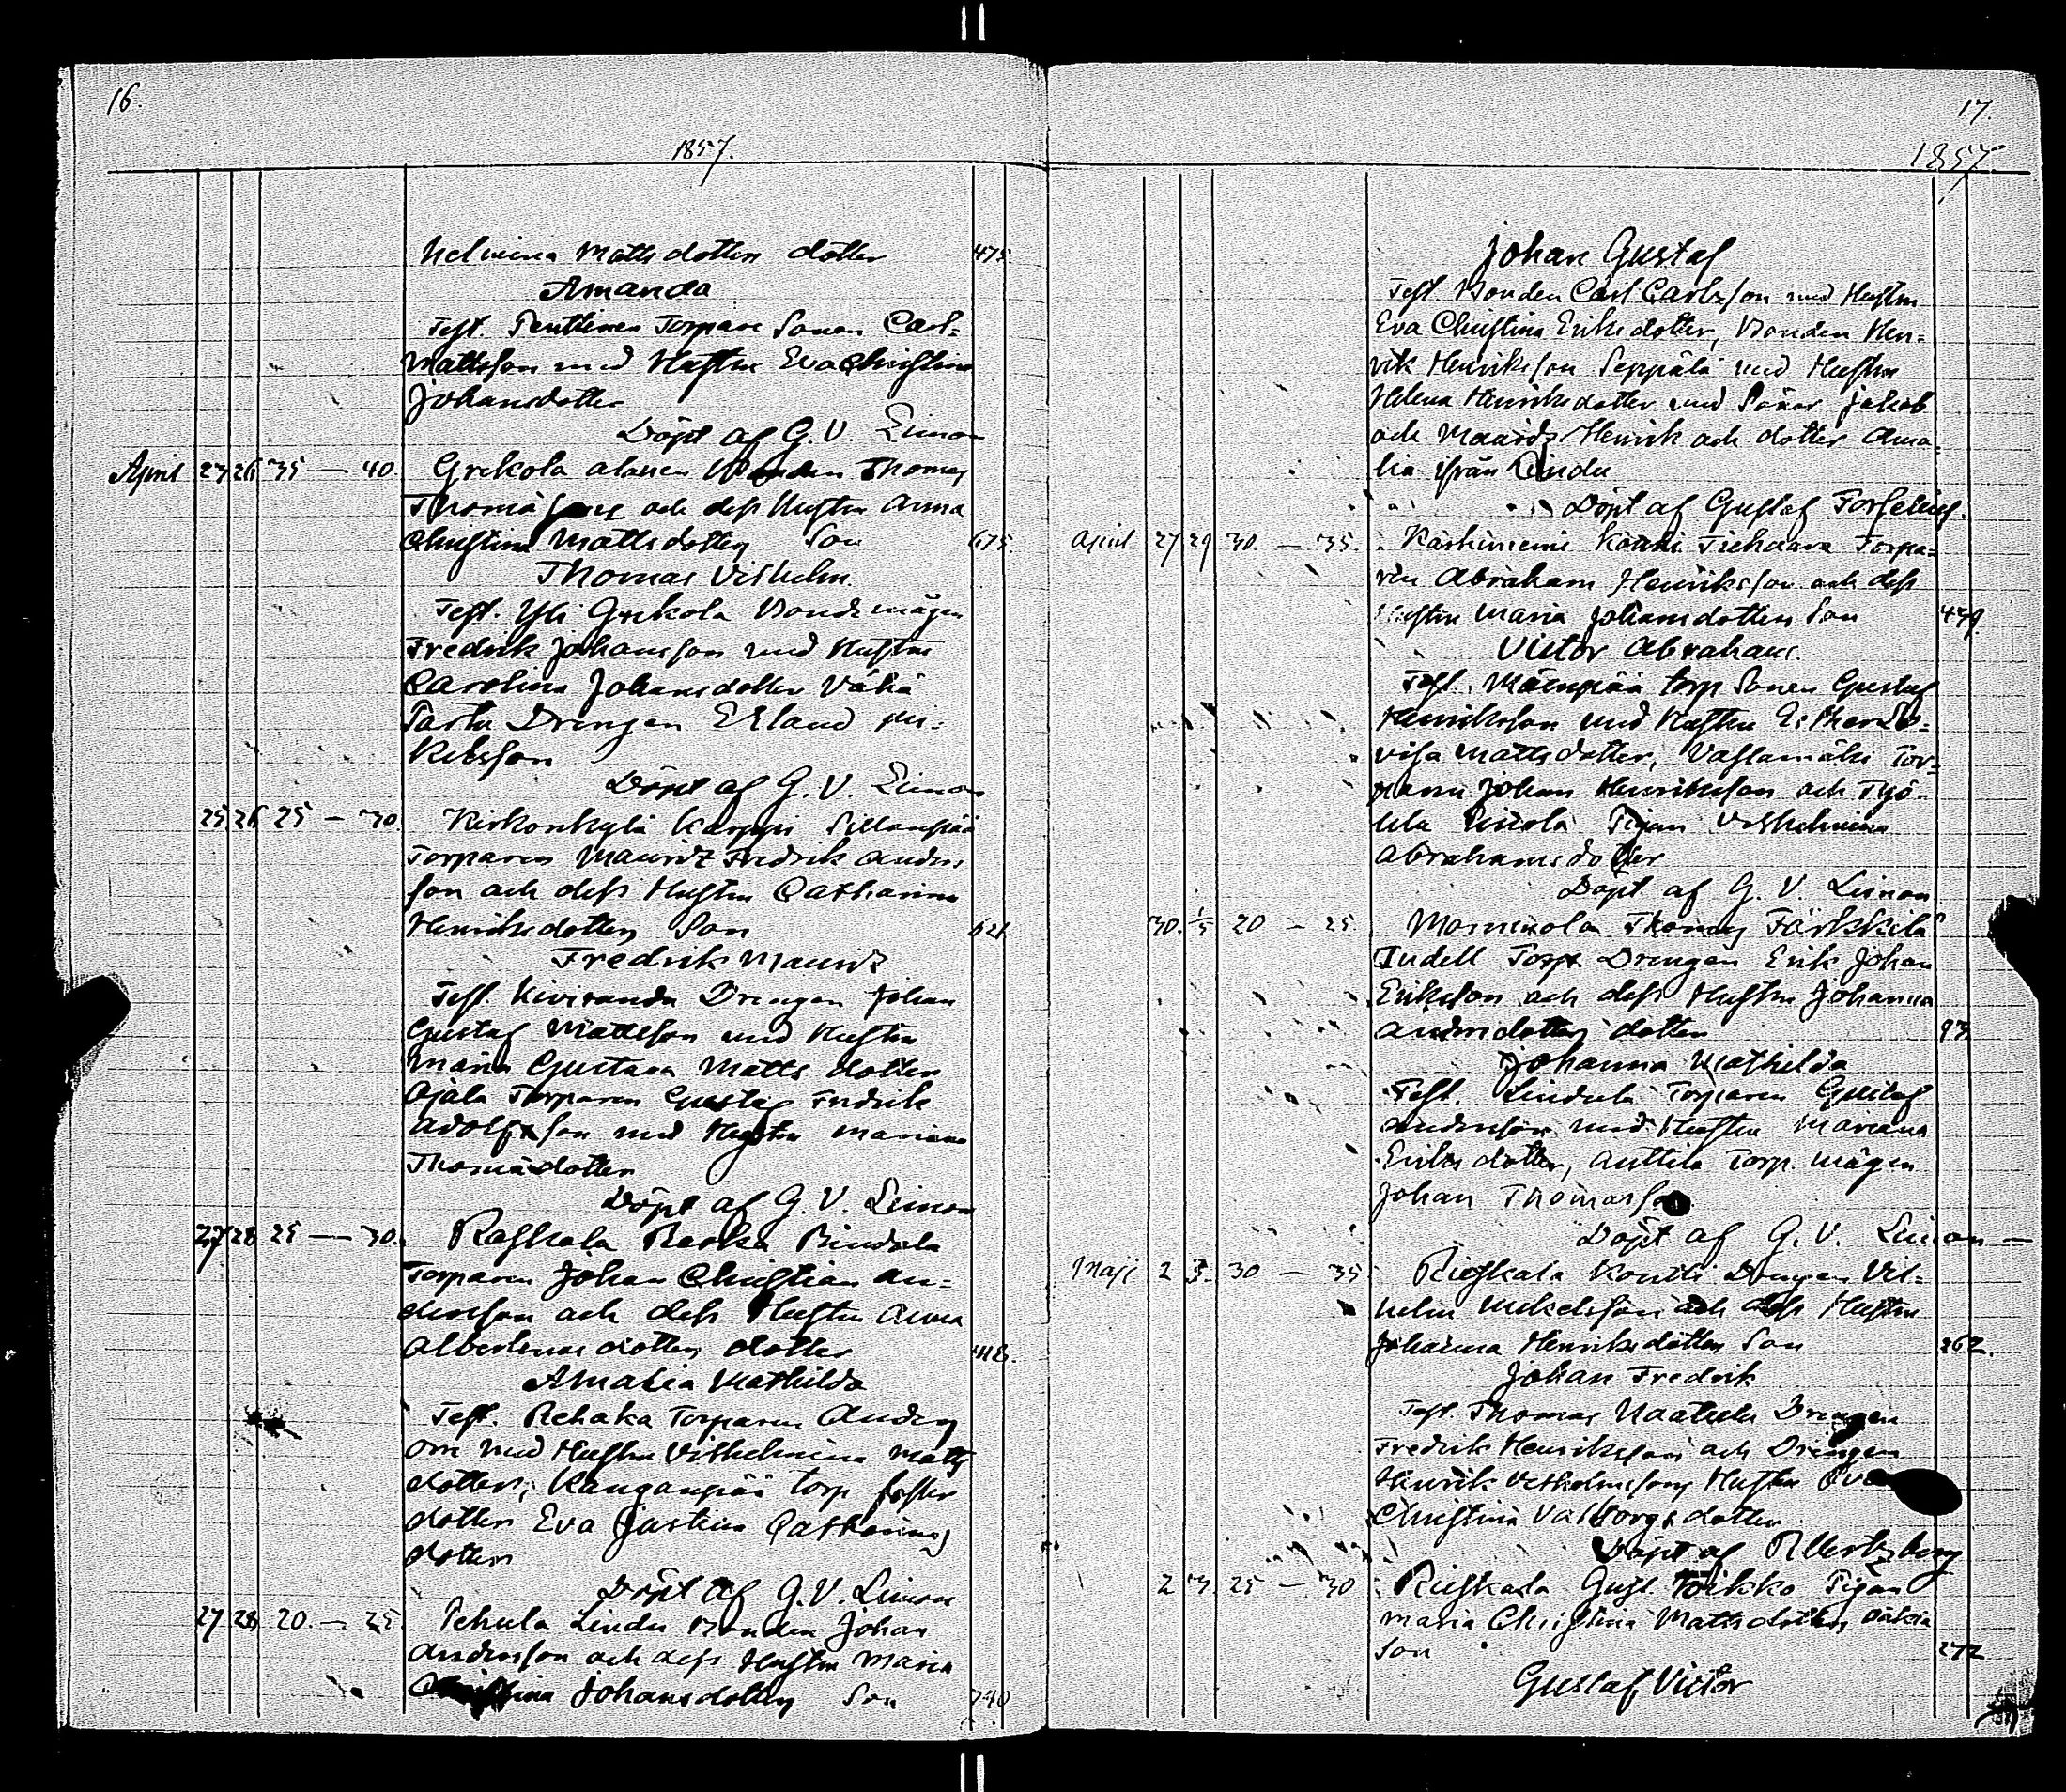 16.
1857.
Helmina Matts dotters dotter 475
Amanda
Test. Penttinen Torpare Sonen Carl
Mattsson med Hustru Eva Christina
Johansdotter
Döpt af G. V. Limon
April 23 26 35 — 40. Grekola alanen Bonden Thomas
Thomasson och dess Hustru Anna
Christina Mattsdotters Son 675.
Thomas Vilhelm.
Test. Yli Grekola Bonde mågen
Fredrik Johansson med Hustru
Carolina Johansdotter Vähä
Dringen Erland Mi-
kelsson
Döpt af G. V. Limon
25 26 25 — 30. Kirkonkylä Karppi Sillanpää
Torparen Mauritz Fredrik Anders
son och dess Hustru Catharina
Henriksdotters Son 621
Fredrik Mauritz
Test. Kiviranda Drengen Johan
Gustaf Mattsson med Hustru
Maria Gustava Matts dotter
Ajala Torparen Gustaf Fredrik
Adolfsson med Hustru Mariana
Thomasdotter
Döpt af G. V. Limon
27 28 25 — 30. Raskala Raska
Torparen Johan Christian An-
dersson och dess Hustru Anna
Albertinas dotters dotter 418.
Amalia Mathilda
Test. Rehaka Torparen Anders
Om med Hustru Vilhelmina Matts
dotter, Kanganpää torp foster
dotter Eva Justina Catharinas
dotter
Döpt af G. V. Limon
27 28 20. — 25 Pehula Lindu Bonden Johan
Andersson och dess Hustru Maria
Christina Johansdotters Son 740
17.
1857.
Johan Gustaf
Test. Bonden Carl Carlsson med Hustru
Eva Christina Eriksdotter, Bonden Hen-
rik Henriksson Seppälä med Hustru
Helena Henriksdotter med Söner Jakob
och Maurits Henrik och dotter Ama-
lia ifrån Lindu
Döpt af Gustaf Forselius.
April 27 29 30 — 35. Karhiniemi Torpa-
ren Abraham Henriksson och dess
Hustru Maria Johansdotters Son 479.
Victor Abraham.
Test. Mäenpää torp Sonen Gustaf
Henriksson med Hustru Esther Lo-
visa Mattsdotter, Vaslamäki Tor-
paren Johan Henriksson och Työ-
lilä Pigan Vilhelmina
Abrahamsdotter
Döpt. af G. V. Limon
30. 1/5 20 — 25 Mommola Thomas Färkkilä
Indell Torp Drengen Erik Johan
Eriksson och dess Hustru Johanna
Andersdotters dotter 93
Johanna Mathilda
Test. Lindula Torparen Gustaf
Andersson med Hustru Mariana
Eriksdotter, Anttila Torp. mågen
Johan Thomasson
Döpt af G. V. Limon —
Maji 2 3. 30 — 35 Rieskala Kontti Drengen Vil-
helm Mikelsson och dess Hustru
Johanna Henriksdotters Son 262.
Johan Fredrik
Test. Thomas Naatula Drengen
Fredrik Henriksson och Drengen
Henrik Vilhelmssons Hustru Eva
Christina Valborgsdotter
Döpt af R Hertzberg
2 3. 25 — 30 Rieskala Gust. Pigan
Maria Christina Mattsdotters oäkta
Son 272
Gustaf Victor